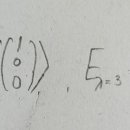 (1 0 0)⟩ , E_λ=3